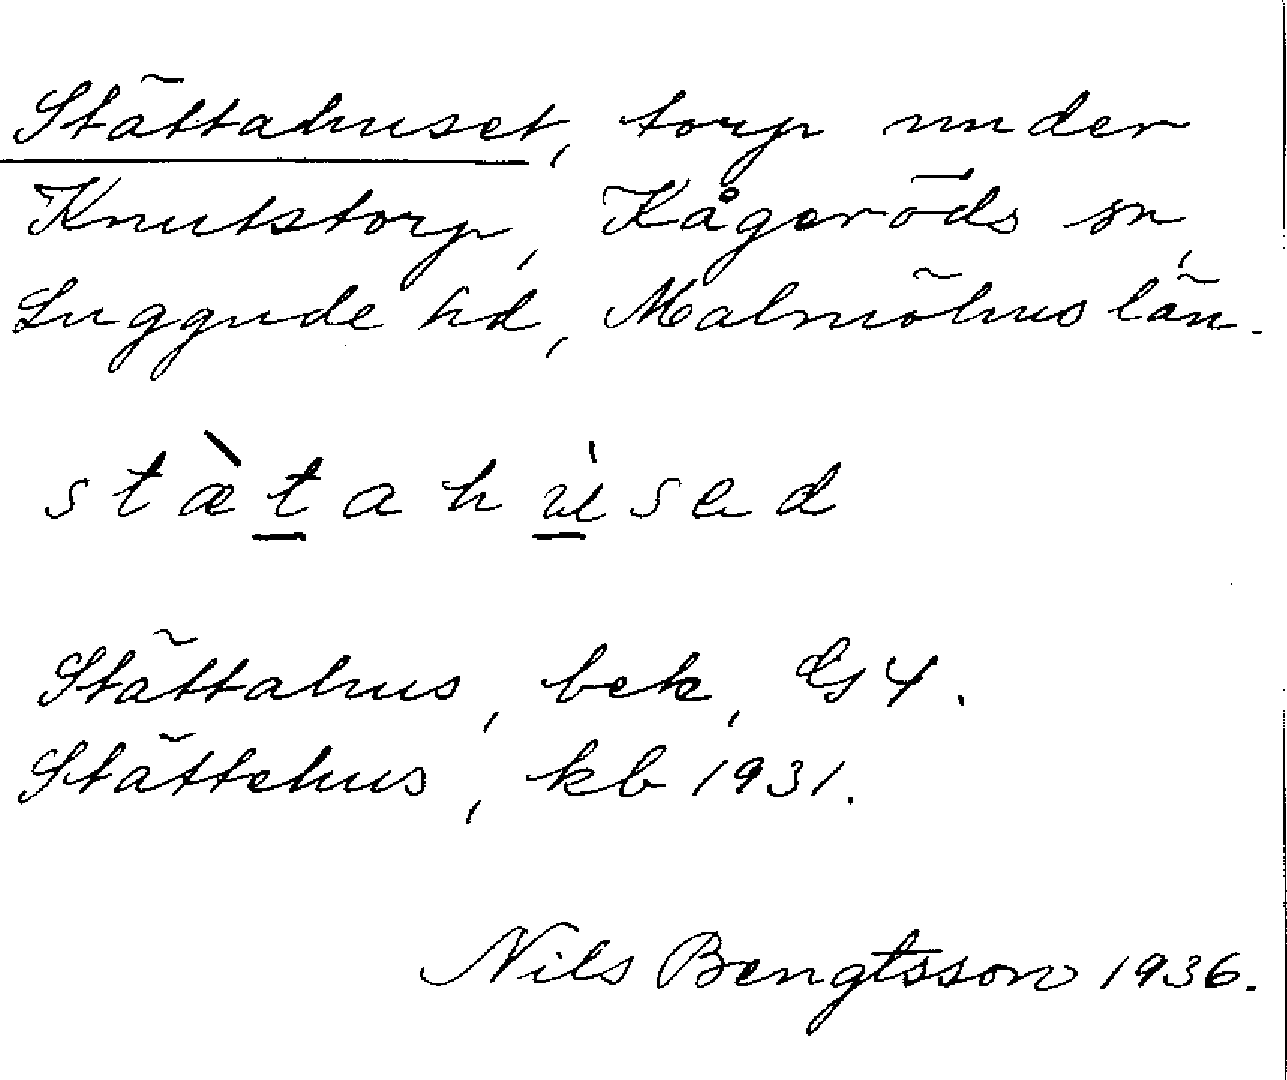 Stättahuset, torp under
Knutstorp, Kågeröds sn,
Luggude hd, Malmöhus län.
stæ̀t̲ahù̲sed
Stättahus, bek, GS 4.
Stättehus, kb 1931.
Nils Bengtsson 1936.